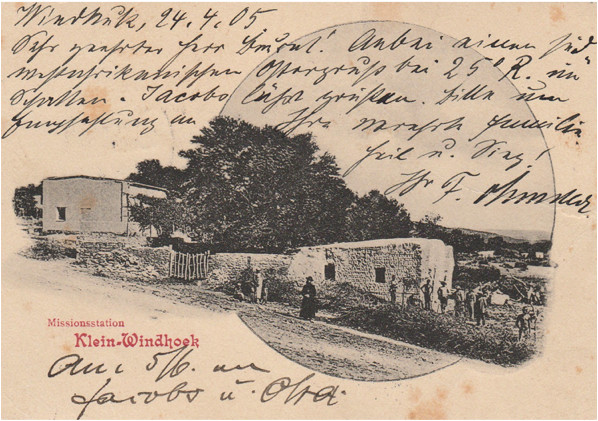 Windhuk, 24.4.05
Sehr geehrter Herr ! Anbei einen süd
westafrikanischen Ostergruß bei 25° R. im
Schatten. Jacobs läßt grüßen. Bitte um
Empfehlung an Ihre verehrte Familie
Heil u. Sieg!
Ihr F.
Missionsstation
Klein-Windhoek
Am 5/6. an
Jacobs u.